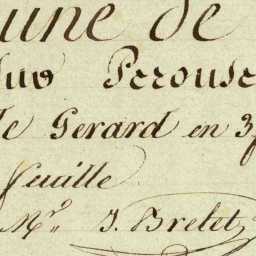 une de
Perouse
Gerard en 3
feuille
Mr. J. Bretet